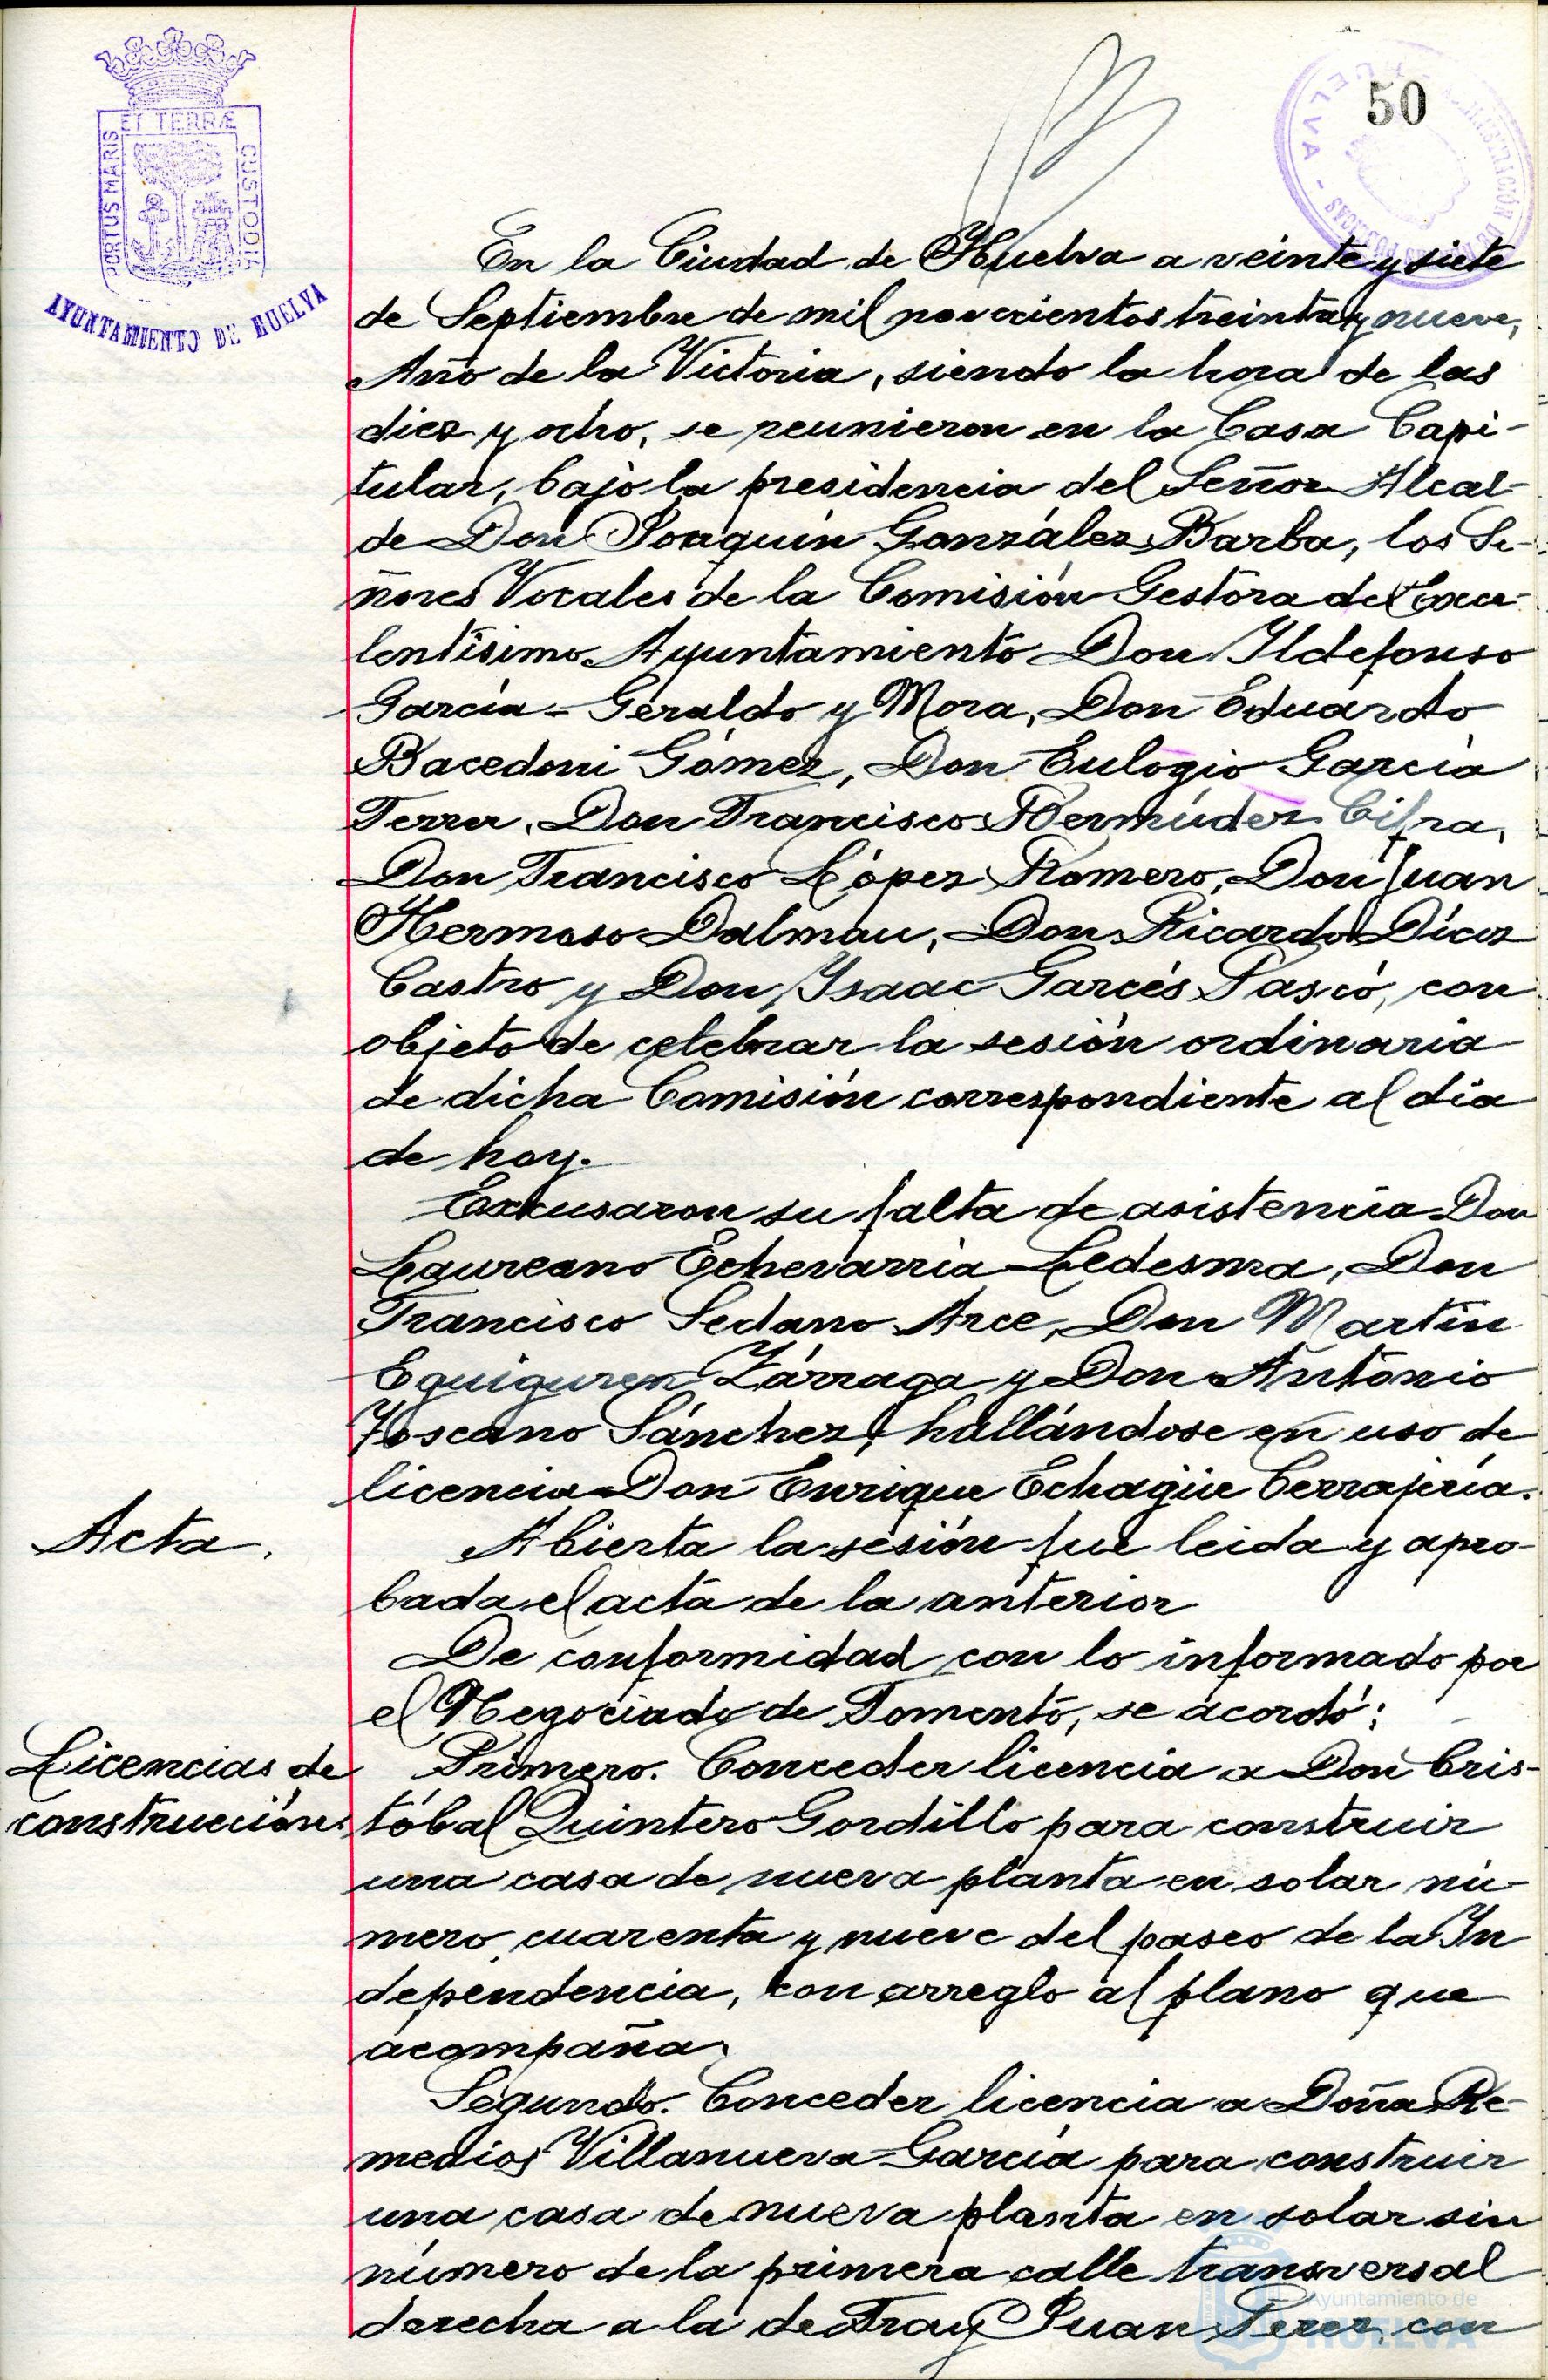 50
PORTUS MARIS
ET TERRÆ
CUSTODIA
AYUNTAMIENTO DE HUELVA
En la Ciudad de Huelva a veinte y siete
de Septiembre de mil novecientos treinta y nueve,
Año de la Victoria, siendo la hora de las
diez y ocho, se reunieron en la Casa Capi-
tular, bajo la presidencia del Señor Alcal-
de Don Joaquín González Barba, los Se-
ñores Vocales de la Comisión Gestora del Exce-
lentísimo Ayuntamiento Don Ildefonso
García-Geraldo y Mora, Don Eduardo
Bacedoni Gómez, Don Eulogio García
Ferrer, Don Francisco Bermúdez Cifra,
Don Francisco López Romero, Don Juan
Hermoso Dalmau, Don Ricardo Díez
Castro y Don Ysaac Garcés Pascó, con
objeto de celebrar la sesión ordinaria
de dicha Comisión correspondiente al día
de hoy.
Excusaron su falta de asistencia Don
Laureano Echevarría Ledesma, Don
Francisco Sedano Arce, Don Martín
Eguiguren Zárraga y Don Antonio
Toscano Sánchez, hallándose en uso de
licencia Don Enrique Echagüe Cerrajería.
Acta.
Abierta la sesión fue leida y apro-
bada el acta de la anterior
De conformidad con lo informado por
el Negociado de Fomento, se acordó:
Licencias de
construcción.
Primero. Conceder licencia a Don Cris-
tóbal Quintero Gordillo para construir
una casa de nueva planta en solar nú-
mero cuarenta y nueve del paseo de la Yn
dependencia, con arreglo al plano que
acompaña.
Segundo. Conceder licencia a Doña Re-
medios Villanueva García para construir
una casa de nueva planta en solar sin
número de la primera calle transversal
derecha a la de Fray Juan Perez, con
Ayuntamiento de
HUELVA